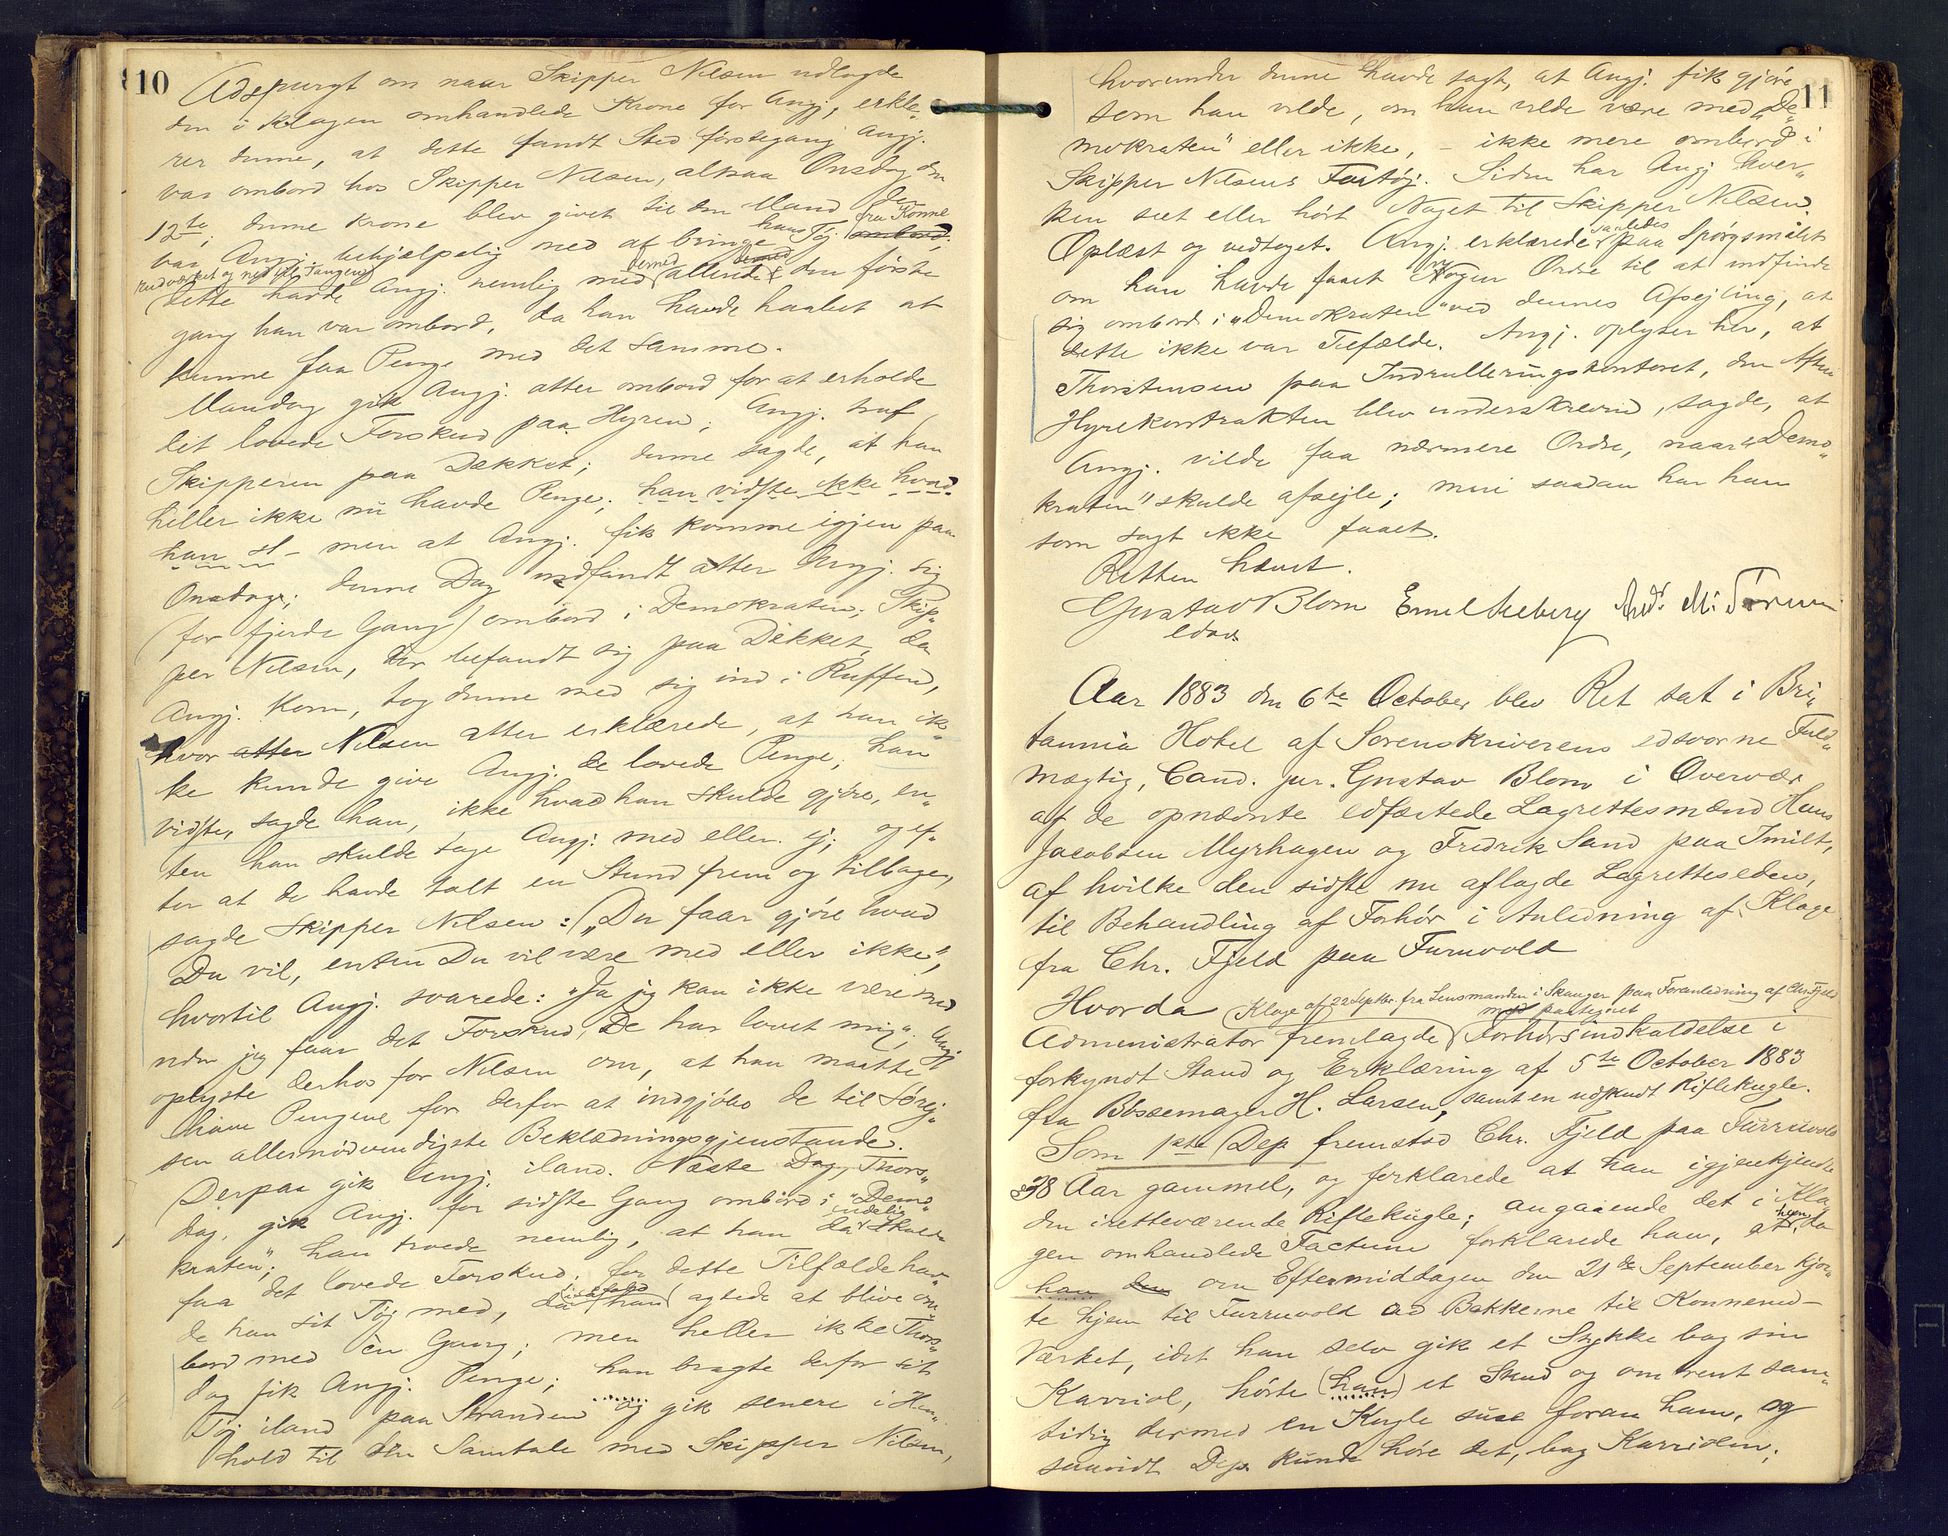 10
Adspurgt om naar Skipper Nilsen udlagde
den i Klagen omhandlede Krone for Angj, erklæ-
rer denne, at dette fandt Sted førstegang Angj.
var ombord hos Skipper Nilsen, altsaa Onsdag den
12te; denne Krone blev givet til den Mand der
var Angj. behjælpelig med at bringe hans Tøj fra Konne
rudværket og ned til Tangen
dette havde Angj. nemlig med allerede den første
gang han var ombord, da han havde haabet at
kunne faa Penge med det samme.
Mandag gik Angj. atter ombord for at erholde
det lovede Forskud paa Hyren; Angj. traf
Skipperen paa Dækket; denne sagde, at han
heller ikke nu havde Penge; han vidste ikke hvad
han sk– men at Angj. fik komme igjen paa
Onsdag; denne Dag indfandt atter Angj. sig
(for fjerde Gang) ombord i Demokraten; Skip-
per Nilsen, der befandt sig paa Dækket, da
Angj. kom, tog denne med sig ind i Ruffen,
hvor atter Nilsen atter erklærede, at han ik-
ke kunde give Angj. de lovede Penge; han
vidste, sagde han, ikke hvad han skulde gjøre, en-
ten han skulde tage Angj. med eller ej; og ef-
ter at de havde talt en Stund frem og tilbage,
sagde Skipper Nilsen: "Du faar gjøre hvad
Du vil, enten Du vil være med eller ikke",
hvortil Angj. svarede: "Ja jeg kan ikke være med
uden jeg faar det Forskud, De har lovet mig"; Angj.
oplyste derhos for Nilsen om, at han maatte
have Pengene for derfor at indkjøbe de til Sørej-
sen allernødvendigste Beklædningsgjenstande.
Derpaa gik Angj. iland. Næste Dag, Thors-
dag, gik Angj. for sidste Gang ombord i "Demo-
kraten"; han troede nemlig, at han da endelig skulde
faa det lovede Forskud; for dette Tilfælde hav-
de han sit Tøj med, da han isaafald agtede at blive om
bord med en Gang; men heller ikke Thors-
dag fik Angj. Penge; han bragte derfor sit
Tøj iland paa Stranden og gik senere i Hen-
hold til den Samtale med Skipper Nilsen,
11
hvorunder denne havde sagt, at Angj. fik gjøre
som han vilde, om han vilde være med "De-
mokraten" eller ikke, – ikke mere ombord i
Skipper Nilsens Fartøj. Siden har Angj hver-
ken seet eller hørt Noget til Skipper Nilsen.
Oplæst og vedtaget. Angj. erklærede saaledes paa Spørgsmålet
om han havde faaet Nogen Ordre til at indfinde
sig ombord i "Demokraten" ved dennes Afsejling, at
dette ikke var Tilfælde. Angj. oplyser her, at
Thorstensen paa Indrulleringskontoret, den Aften
Hyrekontrakten blev underskreven, sagde, at
Angj. vilde faa nærmere Ordre, naar "Demo-
kraten" skulde afsejle; men saadan har han
som sagt ikke faaet.
Retten hævet.
Gustav Blom Emil Seeberg And. M.
edsv.
Aar 1883 den 6te October blev Ret sat i Bri-
tannia Hotel af Sorenskriverens edsvorne Fuld-
mægtig, Cand. jur. Gustav Blom i Overvær
af de opnævnte edfæstede Lagrettesmænd Hans
Jacobsen Myrhagen og Fredrik Sand paa Tmilt,
af hvilke den sidste nu aflagde Lagretteseden,
til Behandling af Forhør i Anledning af Klage
fra Chr. Fjeld paa Furuvold
Hvorda Klage af 22 Septbr. fra Lensmanden i Skauger paa Foranledning af Chr. Fjeld
med paategnet
Administrator fremlagde Forhørsindkaldelse i
forkyndt Stand og Erklæring af 5te October 1883
fra Bøssemager H. Larsen, samt en udskudt Riflekugle.
Som 1ste Dep fremstod Chr. Fjeld paa Furruvold
38 Aar gammel, og forklarede at han igjenkjendte
den iretteværende Riflekugle; angaaende det i Kla
gen omhandlede Factum forklarede han, at da
han den om Eftermiddagen den 21de September kjør-
te hjem til Furruvold ad Bakkerne til Konnerud-
Værket, idet han selv gik et Stykke bag sin
Karriol, hørte (han) et Skud og omtrent sam-
tidig dermed en Kugle suse foran ham, og
saavidt Dep. kunde høre det, bag Karriolen;